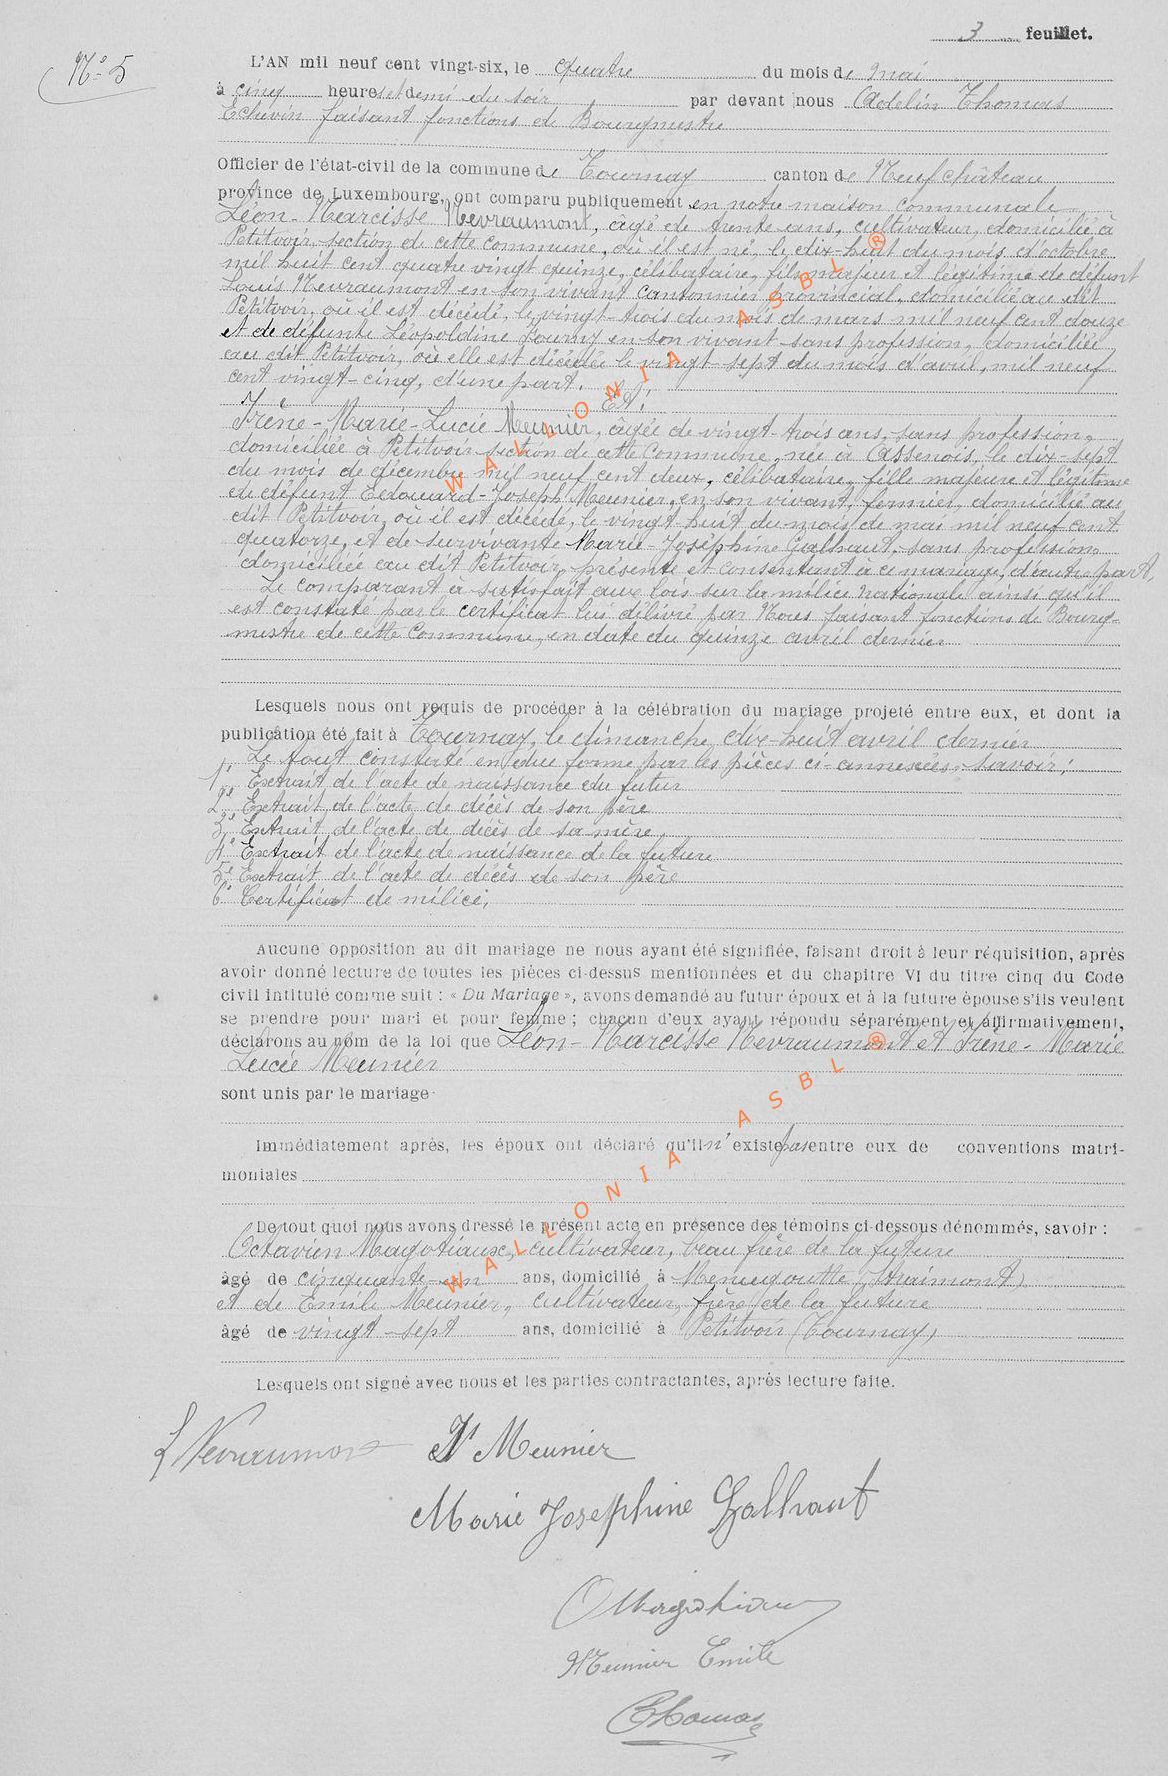 3 feuillet.
N° 5
L'AN mil neuf cent vingt-six, le quatre du mois de mai
à cinq heures et demi du soir par devant nous Adelin Thomas
Echevin faisant fonctions de Bourgmestre
Officier de l'état-civil de la commune de Tournay canton de Neufchâteau
province de Luxembourg, ont comparu publiquement en notre maison communale
Léon-Narcisse Nevraumont, âgé de trente ans, cultivateur, domicilié à
Petitvoir section de cette commune, où il est né, le dix-huit du mois d'octobre
mil huit cent quatre vingt quinze, célibataire, fils majeur et légitime de défunt
Louis Nevraumont en son vivant cantonnier provincial, domicilié au dit
Petitvoir, où il est décédé, le vingt-trois du mois de mars mil neuf cent douze
et de défunte Léopoldine Fourny en son vivant sans profession, domiciliée
au dit Petitvoir, où elle est décédée le vingt-sept du mois d'avril, mil neuf
cent vingt-cinq, d'une part.
Et:
Irène-Marie-Lucie Meunier, âgée de vingt-trois ans, sans profession,
domiciliée à Petitvoir section de cette Commune, née à Assenois, le dix-sept
du mois de décembre mil neuf cent deux, célibataire, fille majeure et légitime
de défunt Edouard-Joseph Meunier, en son vivant, fermier, domicilié au
dit Petitvoir, où il est décédé, le vingt huit du mois de mai mil neuf cent
quatorze, et de survivante Marie-Joséphine Galhaut, sans profession,
domiciliée au dit Petitvoir, présente et consentant à ce mariage, d'autre part,
Le comparant à satisfait aux lois sur la milice nationale ainsi qu'il
est constaté par le certificat lui délivré par Nous faisant fonctions de Bourg-
mestre de cette Commune, en date du quinze avril dernier
Lesquels nous ont requis de procéder à la célébration du mariage projeté entre eux, et dont la
publication été fait à Tournay, le dimanche dix-huit avril dernier
Le tout constaté en due forme par les pièces ci-annexées, savoir:
1° Extrait de l'acte de naissance du futur
2° Extrait de l'acte de décès de son père
3° Extrait de l'acte de décès de sa mère,
4° Extrait de l'acte de naissance de la future
5° Extrait de l'acte de décès de son père
6° Certificat de milice,
Aucune opposition au dit mariage ne nous ayant été signifiée, faisant droit à leur réquisition, après
avoir donné lecture de toutes les pièces ci-dessus mentionnées et du chapitre VI du titre cinq du Code
civil intitulé comme suit : « Du Mariage », avons demandé au futur époux et à la future épouse s'ils veulent
se prendre pour mari et pour femme ; chacun d'eux ayant répondu séparément et affirmativement,
déclarons au nom de la loi que Léon-Narcisse Nevraumont et Irène-Marie
Lucie Meunier
sont unis par le mariage
Immédiatement après, les époux ont déclaré qu'il n'existe pas entre eux de conventions matri-
moniales
De tout quoi nous avons dressé le présent acte en présence des témoins ci-dessous dénommés, savoir :
Octavien Magotiaux, cultivateur, beau frère de la future
âgé de cinquante-un ans, domicilié à Menugoutte (Straimont)
et de Emile Meunier, cultivateur, frère de la future
âgé de vingt-sept ans, domicilié à Petitvoir (Tournay)
Lesquels ont signé avec nous et les parties contractantes, après lecture faite.
L Nevraumont
Ir Meunier
Marie Josephine Galhaut
O Magotiaux
Meunier Emile
Thomas
WALLONIA ASBL ®
WALLONIA ASBL ®